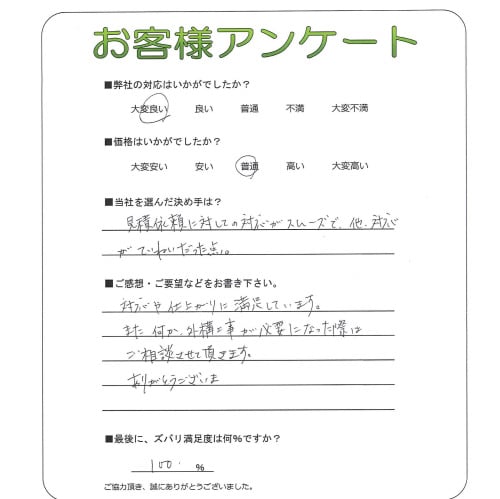 お客様アンケート
■弊社の対応はいかがでしたか？
大変良い 良い 普通 不満 大変不満
■価格はいかがでしたか？
大変安い 安い 普通 高い 大変高い
■当社を選んだ決め手は？
見積依頼に対しての対応がスムーズで、他、対応
がていねいだった点。
■ご感想・ご要望などをお書き下さい。
対応や仕上がりに満足しています。
また何か、外構工事が必要になった際は
ご相談させて頂きます。
ありがとうございま
■最後に、ズバリ満足度は何%ですか？
100. %
ご協力頂き、誠にありがとうございました。